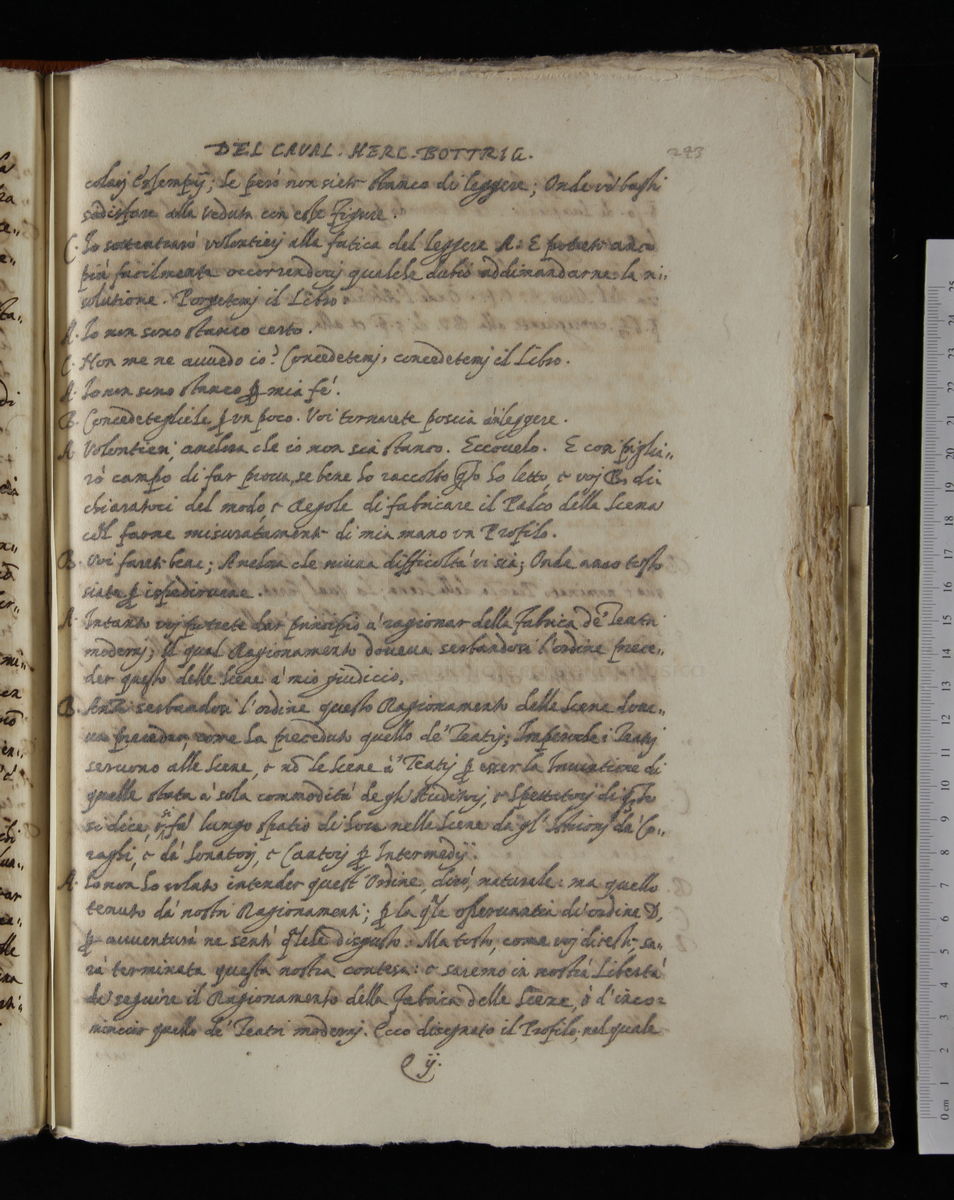 DEL CAVAL. HERC. BOTTRIG.
243
colarj Esempij; Se però non siete stanco di leggere; Onde vi basti
sodisfare alla veduta con esse Figure.
C. Io sottentrarò volontierj alla fatica del leggere A. E potrete anco
più facilmente occorrendovj qualche dubio addimandarne la ri,,
solutione. Porgetemj il Libro
A. Io non sono stanco certo.
C. Non me ne avvedo io? Concedetemj, concedetemj il Libro.
A. Io non sono stanco ꝑ mia fé.
B. Concedeteglielo ꝑ un poco. Voi tornarete poscia à leggere.
A. Volontieri, anchora che io non sia stanco. Eccovelo. E con piglia,,
rò campo di far prova, se bene ho raccolto ho letto, & voj B. di,
chiaratoci del modo, & Regole di fabricare il Palco della Scena
col farne misuratamente di mia mano un Profilo.
B. Voi farete bene; Anchora che niuna difficoltà vi sia; Onde anco tosto
siate ꝑ ispedirvene.
A. Intanto voj potrete dar principio a' ragionar della Fabrica de' Teatri
modernj; Il qual Ragionamento doveva serbandosi l'ordine prece,,
der questo delle Scene a' mio giudicio.
B. Anzi serbandosi l'ordine questo Ragionamento delle Scene dove,,
va preceder, come ha preceduto quello de' Teatrj; Imperoche i Teatrj
servono alle Scene, & nõ le Scene a' Teatrj ꝑ esser la Inventione di
quelle stata a' sola commodità de gli Auditorj, & Spettatorj di
si dice, si fa' lungo spatio di hore nelle Scene da gl'Histrionj da' Co,,
raghi, & da' Sonatorj, & Cantorj ꝑ Intermedij.
A. Io non ho voluto intender quest'Ordine, dirò, naturale: ma quello
tenuto da' nostri Ragionamenti; ꝑ la qle osservantia di ordine D.
ꝑ avventura ne sentì disgusto. Ma tosto, come voj diceste, sa,,
rà terminata questa nostra contesa: & saremo in nostra Libertà
di seguire il Ragionamento della Fabrica delle Scene, ò d'inco=
minciar quello de' Teatri modernj. Ecco disegnato il Profilo, nel quale
ij.